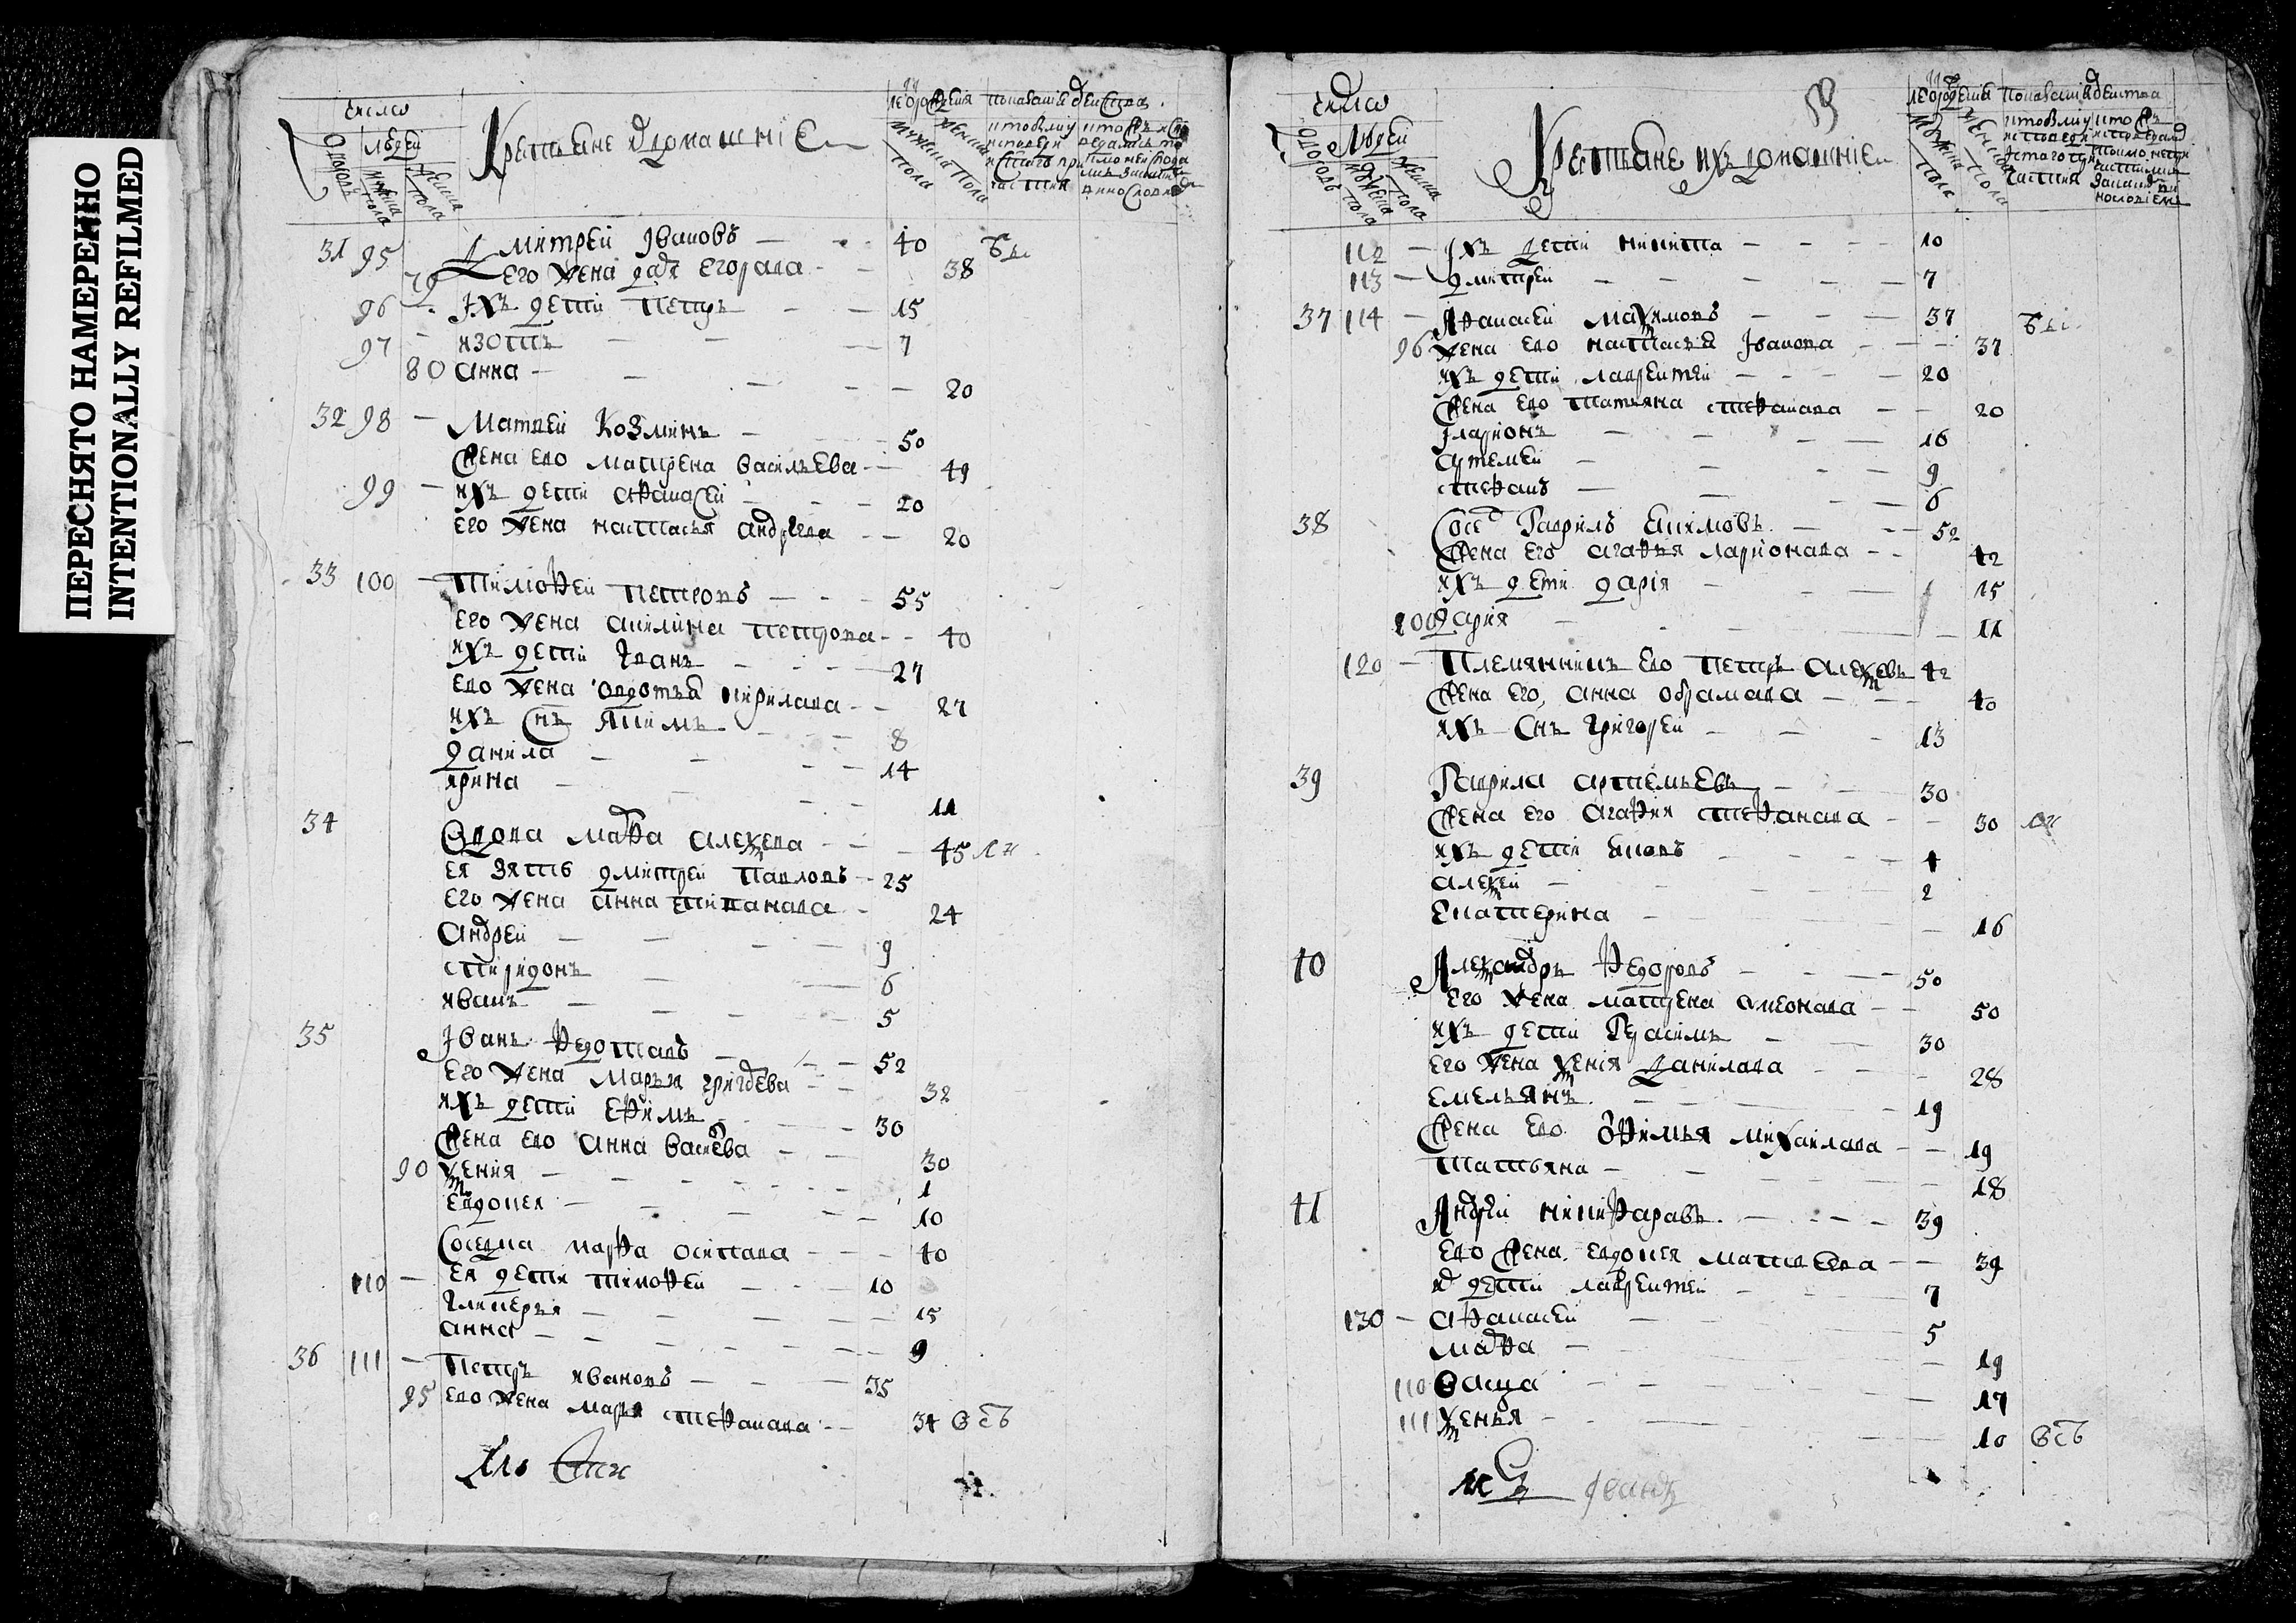 ПЕРЕСНЯТО НАМЕРЕННО
INTENTIONALLY REFILMED
число
людей
Крестьяне и домашние
мужеска пола
женска пола
31 95 Дмитрей Iвановъ 40
79 его жена дарья егорава 38
96 Iхъ дети петръ 15
97 изотъ 7
80 анна 20
32 98 Матвей Козминъ 50
жена ево матрена васильева 49
99 ихъ дети афанасей 20
его жена настасья андреева 20
33 100 Тимофей петровъ 55
его жена акилина петрова 40
ихъ дети Iванъ 27
ево жена овдотья кирилава 27
ихъ снъ якимъ 8
данила 14
ярина 11
34 Вдова марфа алексева 45
ея зять дмитрей павловъ 25
его жена анна степанава 24
андрей 9
спиридонъ 6
иванъ 5
35 Iванъ Федотавъ 52
его жена марья григорева 32
ихъ дети ефимъ 30
жена ево анна васильева 30
90 ксения 1
евдокея 10
Соседка марфа осипава 40
110 ея дети тимофей 10
гликерья 15
анна 9
36 111 Петръ ивановъ 35
95 ево жена марья стефанава 34
число
людей
Крестьяне ихъ домашние
мужеска пола
женска пола
112 Iхъ дети никита 10
113 дмитрей 7
37 114 Афанасей максимовъ 37
96 жена ево настасья Iванова 37
ихъ дети лаврентей 20
жена ево татияна стефанава 20
Iларионъ 16
артемей 9
стефанъ 6
38 Сосед Гаврилъ екимовъ 52
жена его агафия ларионава 42
ихъ дети дария 15
100 дария 11
120 Племянникъ ево петръ алексевъ 42
жена его, анна обрамава 40
ихъ снъ григорей 13
39 Гаврила артемьевъ 30
жена его агафия стефанава 30
ихъ дети яковъ 4
алексей 2
екатерина 16
40 Александръ Федоровъ 50
его жена матрена симеонава 50
ихъ дети герасимъ 30
его жена ксения данилава 28
емельянъ 19
жена ево офимья михаилава 19
татьяна 18
41 Андрей никифаравъ 39
ево жена евдокея матвеева 39
их дети лаврентей 7
130 афанасей 5
марфа 19
110 васса 17
111 ксенья 10